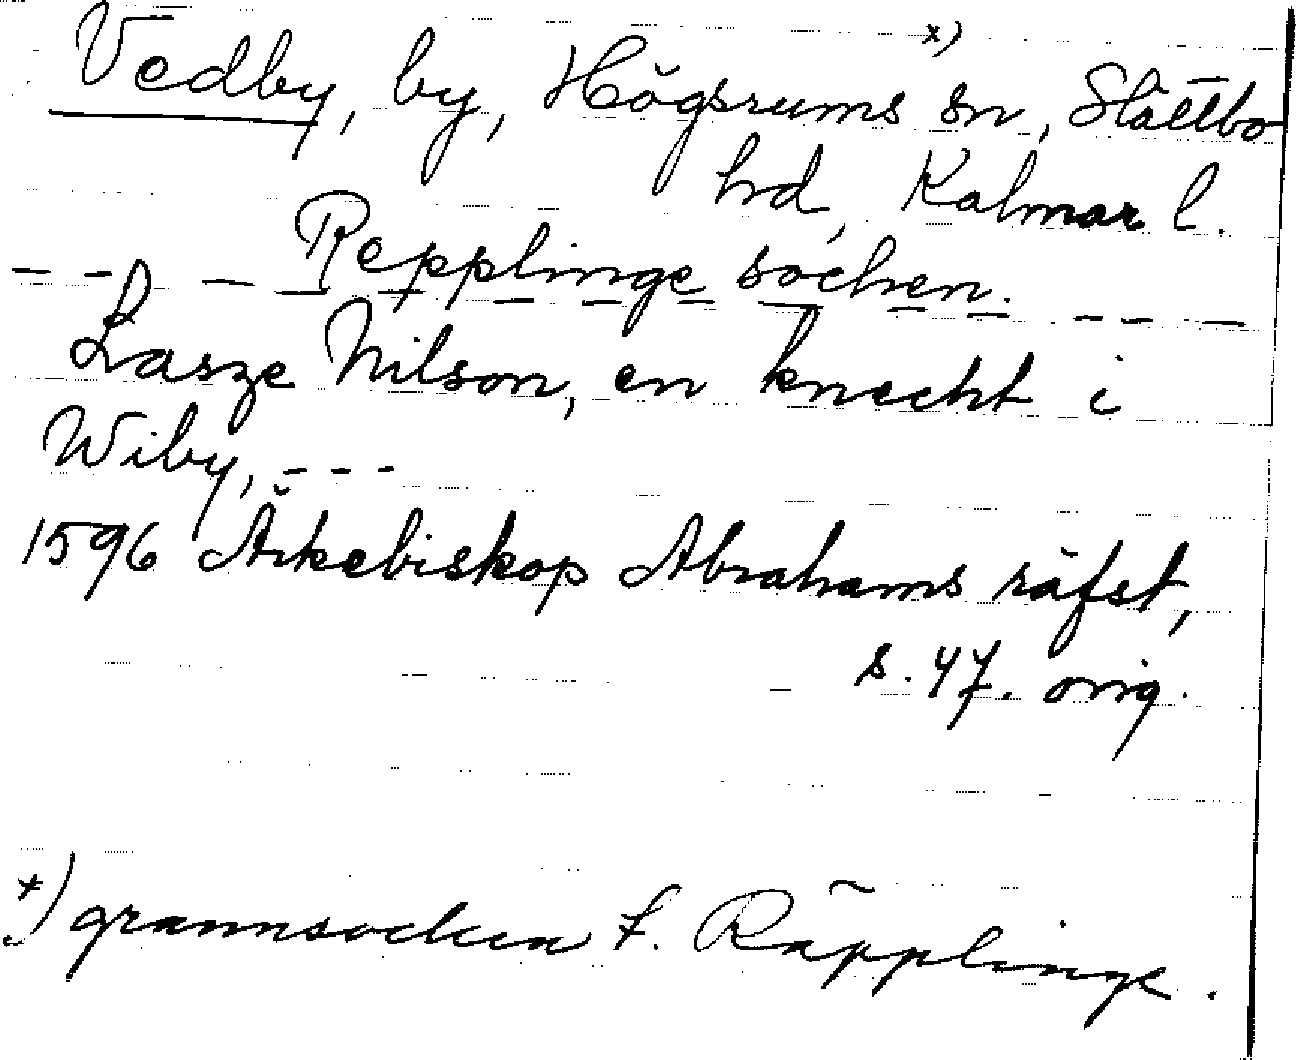 Vedby, by, Högsrums sn,ˣ⁾ Slättbo
hd, Kalmar l.
– – – Repplinge sochen. – – –
Lasze Nilson, en knecht i
Wiby, - - -
1596 Ärkebiskop Abrahams räfst,
s. 47. orig.
x) grannsocken t. Räpplinge.